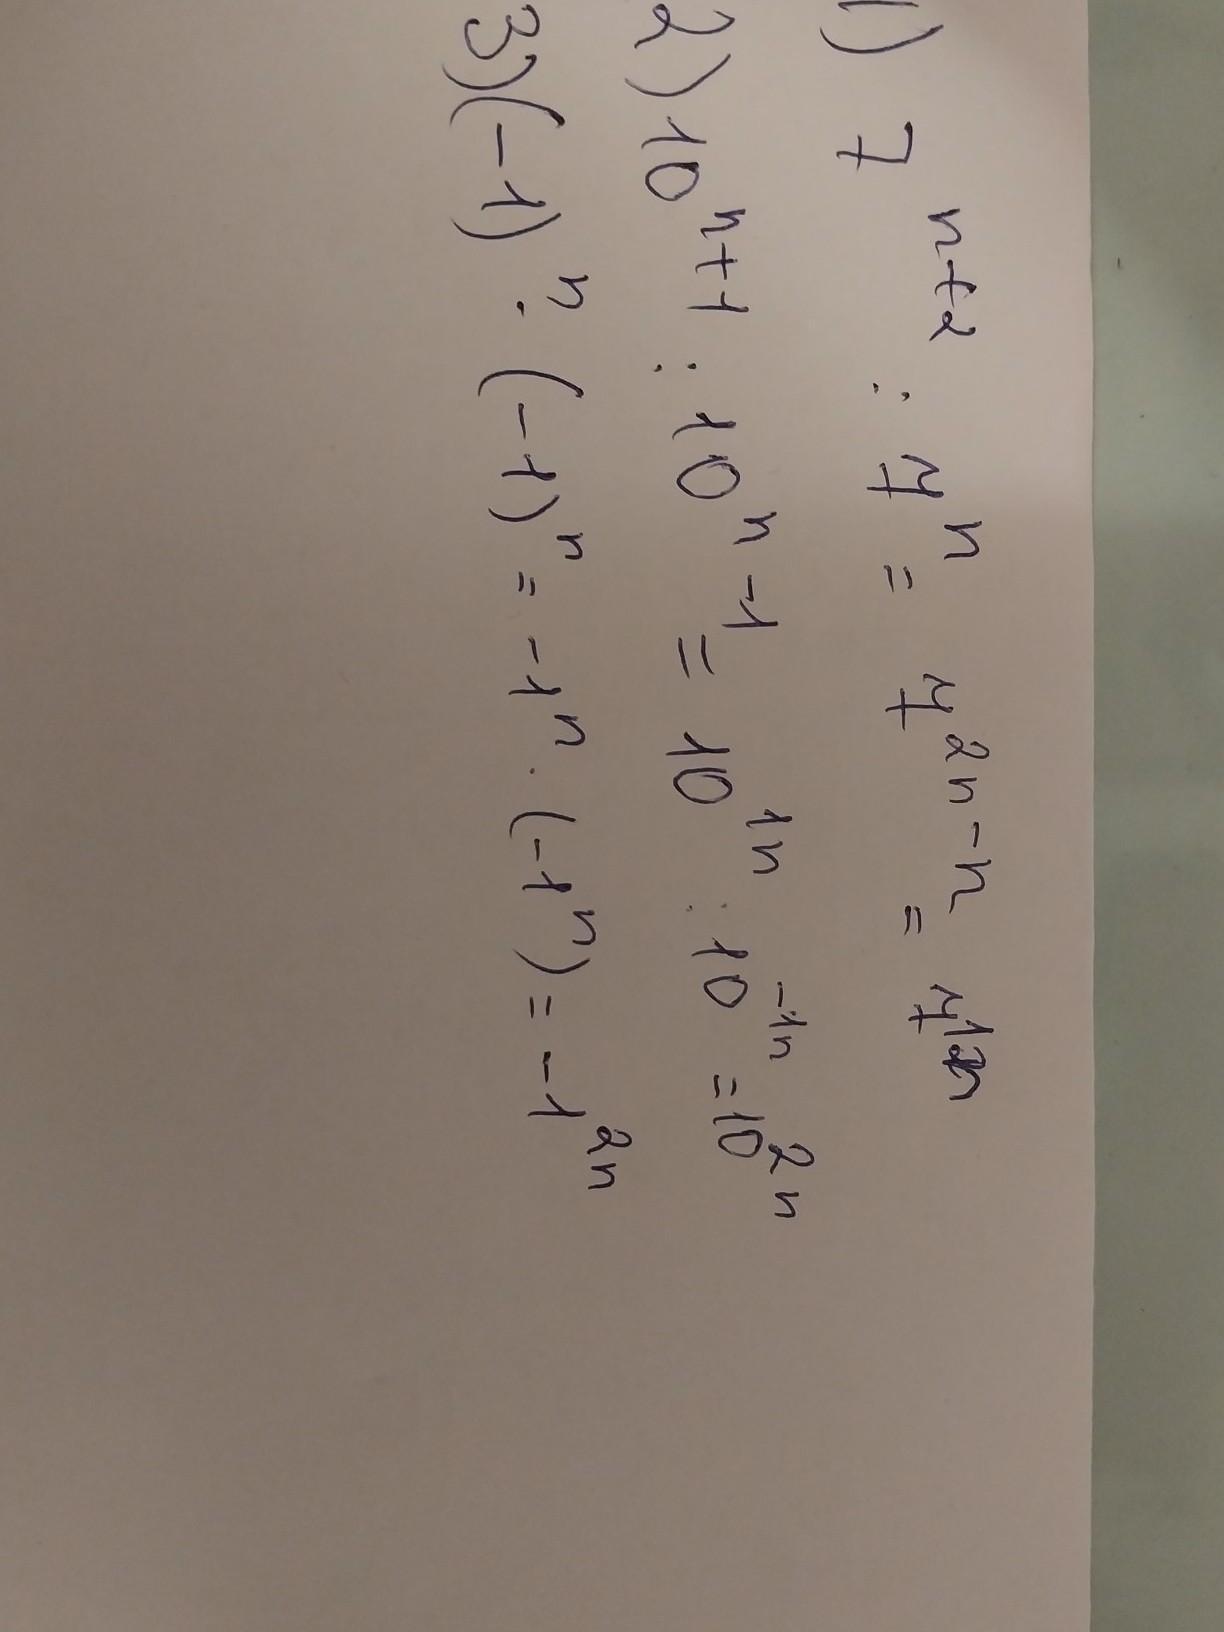 1) 7^{n+2} : 7^n = 7^{2n-n} =
2) 10^{n+1} : 10^{n-1} = 10^{1n} : 10^{-1n} = 10^{2n}
3) (-1)^n · (-1)^n = -1^n · (-1^n) = -1^{2n}